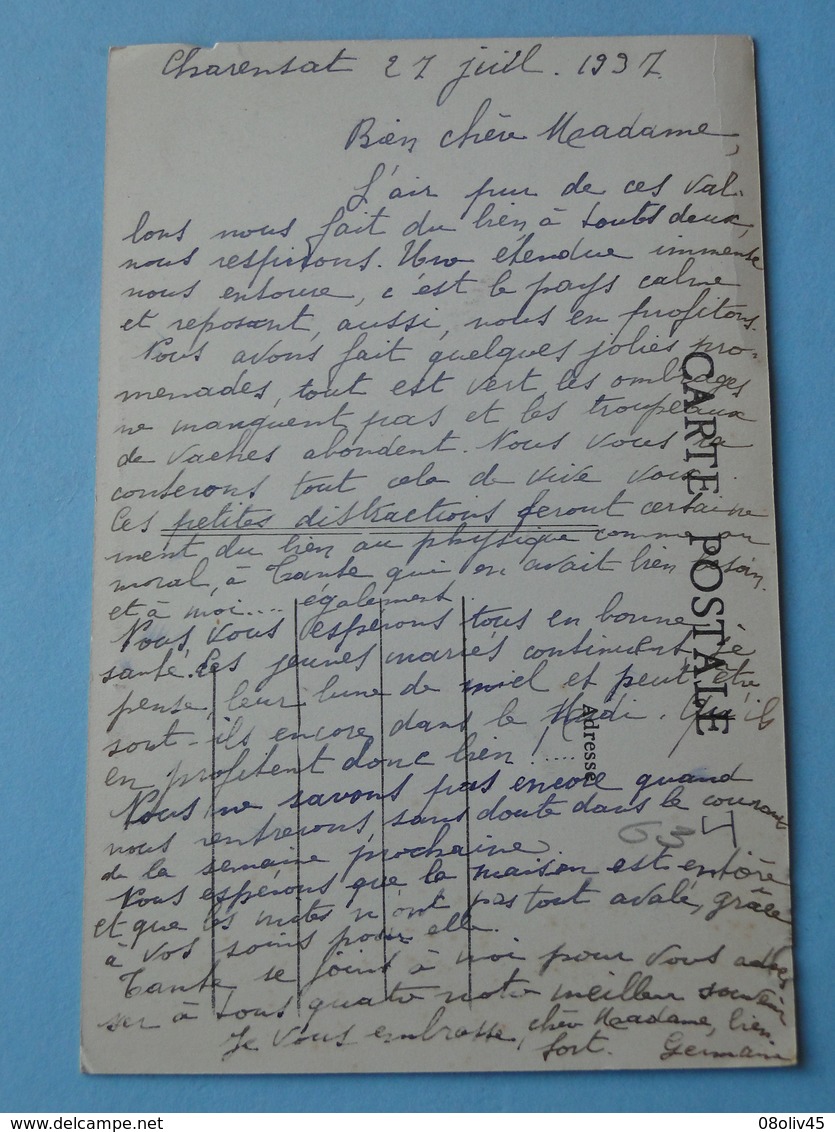 Charensat 27 juil. 1937
Bien chère Madame,
L'air pur de ces val-
lons nous fait du bien à toutes deux,
nous respirons. Une étendue immense
nous entoure, c'est le pays calme
et reposant, aussi, nous en profitons.
Nous avons fait quelques jolies pro-
menades, tout est vert les ombrages
ne manquent pas et les troupeaux
de vaches abondent. Nous vous ra
conterons tout cela de vive voix.
Ces petites distractions feront certaine
ment du bien au physique comme au
moral, à Tante qui en avait bien besoin.
et à moi.... également.
Nous vous espérons tous en bonne
santé. Les jeunes mariés continuent je
pense, leur lune de miel et peut être
sont-ils encore dans le Midi. Qu'ils
en profitent donc bien !.....
Nous ne savons pas encore quand
nous rentrerons sans doute dans le courant
de la semaine prochaine.
Nous espérons que la maison est entière
et que les mites n'ont pas tout avalé, grâce
à vos soins pour elle.
Tante se joint à moi pour vous adres
ser à tous quatre notre meilleur souvenir
Je vous embrasse, chère Madame, bien
fort. Germaine
CARTE POSTALE
Adresse
63
delcampe.net
08oliv45